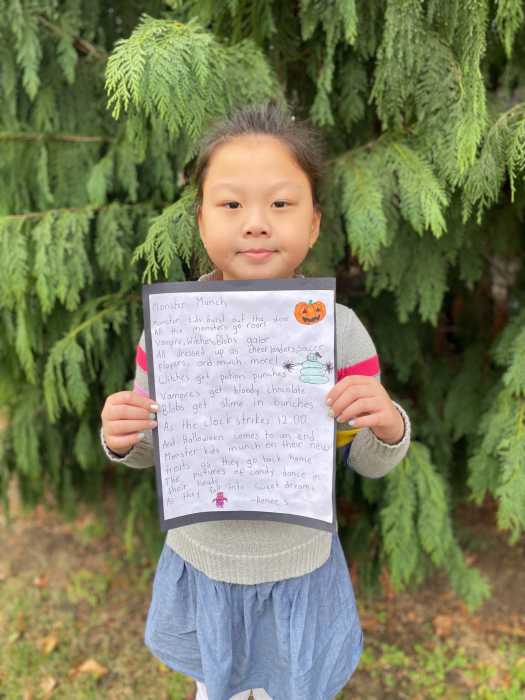 Monster Munch
monster kids burst out the door
All the monsters go roar!
Vampire, Witches, Blobs galor
All dressed up as cheerleaders, soccer
Players, and much more!
Witches get potion punches
Vampires get bloody chocolate
Blobs get slime in bunches
As the clock strikes 12:00
And Halloween comes to an end
Monster kids munch on their new
treats as they go back home
The pictures of candy dance in
their heads
As they fall into sweet dreams
-Renee S.